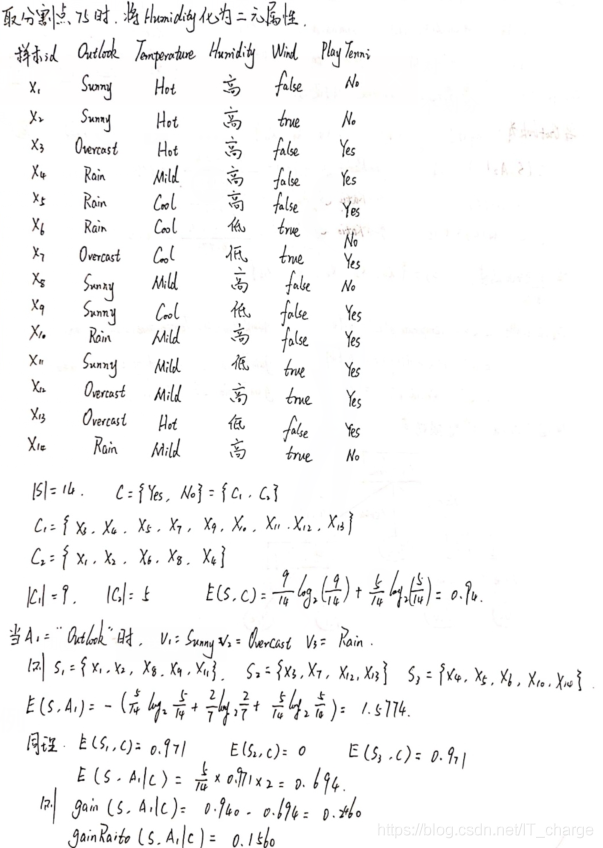 取分割点75时，将Humidity化为二元属性.
样本id Outlook Temperature Humidity Wind PlayTennis
X₁ Sunny Hot 高 false No
X₂ Sunny Hot 高 true No
X₃ Overcast Hot 高 false Yes
X₄ Rain Mild 高 false Yes
X₅ Rain Cool 高 false Yes
X₆ Rain Cool 低 true No
X₇ Overcast Cool 低 true Yes
X₈ Sunny Mild 高 false No
X₉ Sunny Cool 低 false Yes
X₁₀ Rain Mild 高 false Yes
X₁₁ Sunny Mild 低 true Yes
X₁₂ Overcast Mild 高 true Yes
X₁₃ Overcast Hot 低 false Yes
X₁₄ Rain Mild 高 true No
|S|=14. C={Yes, No}={C₁, C₂}
C₁={X₃, X₄, X₅, X₇, X₉, X₁₀, X₁₁, X₁₂, X₁₃}
C₂={X₁, X₂, X₆, X₈, X₄}
|C₁|=9, |C₂|=5 E(S,C)=9/14 log₂(9/14)+5/14 log₂(5/14)=0.94.
当A₁="Outlook"时, V₁=Sunny V₂=Overcast V₃=Rain.
则 S₁={X₁, X₂, X₈, X₉, X₁₁}, S₂={X₃, X₇, X₁₂, X₁₃} S₃={X₄, X₅, X₆, X₁₀, X₁₄}.
E(S,A₁)=-(5/14 log₂ 5/14+2/7 log₂ 2/7+5/14 log₂ 5/14)=1.5774.
同理. E(S₁,C)=0.971 E(S₂,C)=0 E(S₃,C)=0.971
E(S,A₁|C)=5/14×0.971×2=0.694.
则 gain(S,A₁|C)=0.940-0.694=0.2460
gainRaito(S,A₁|C)=0.1560
https://blog.csdn.net/IT_charge